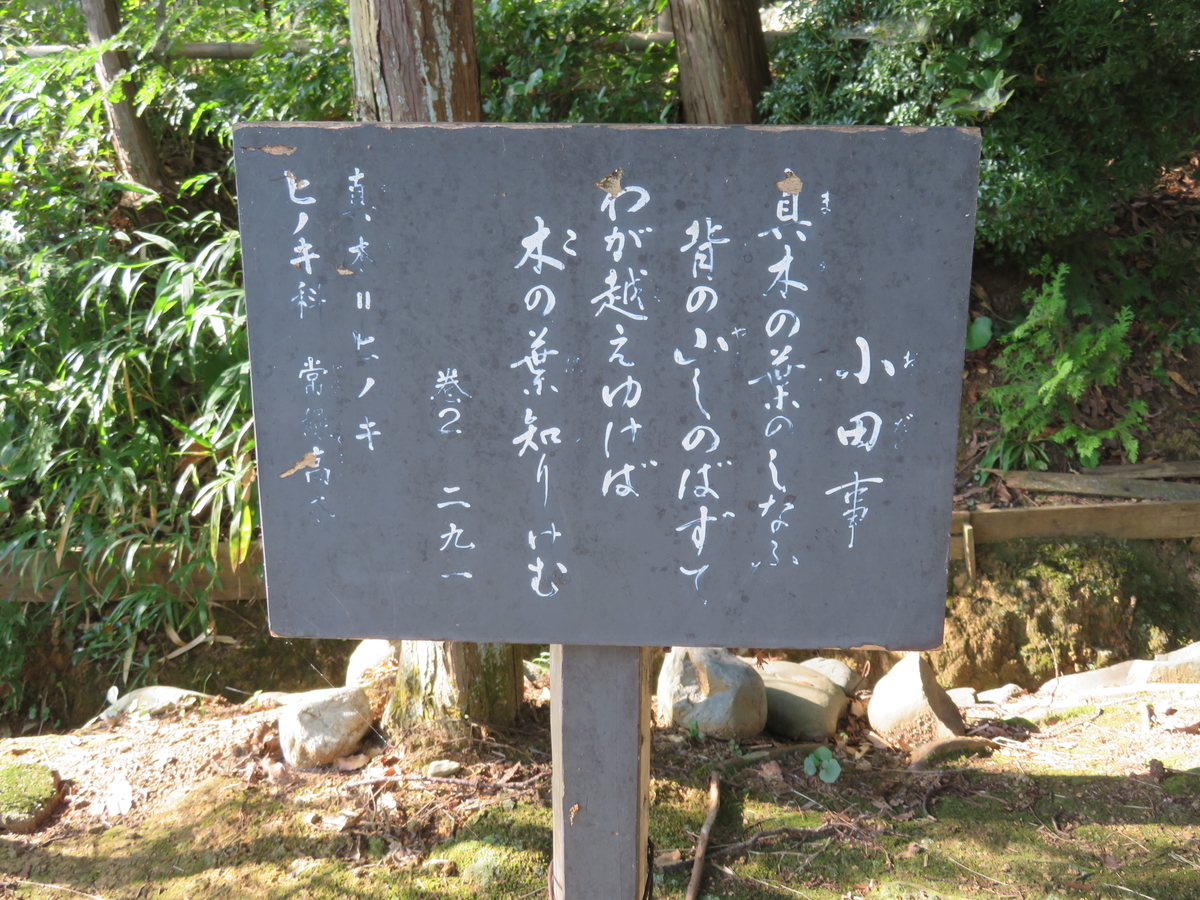 おだ
小田事
ま
真木の葉のしなふ
や
背の山しのばずて
わが越えゆけば
こ
木の葉知りけむ
巻2 二九一
真木=ヒノキ
ヒノキ科 常緑高木